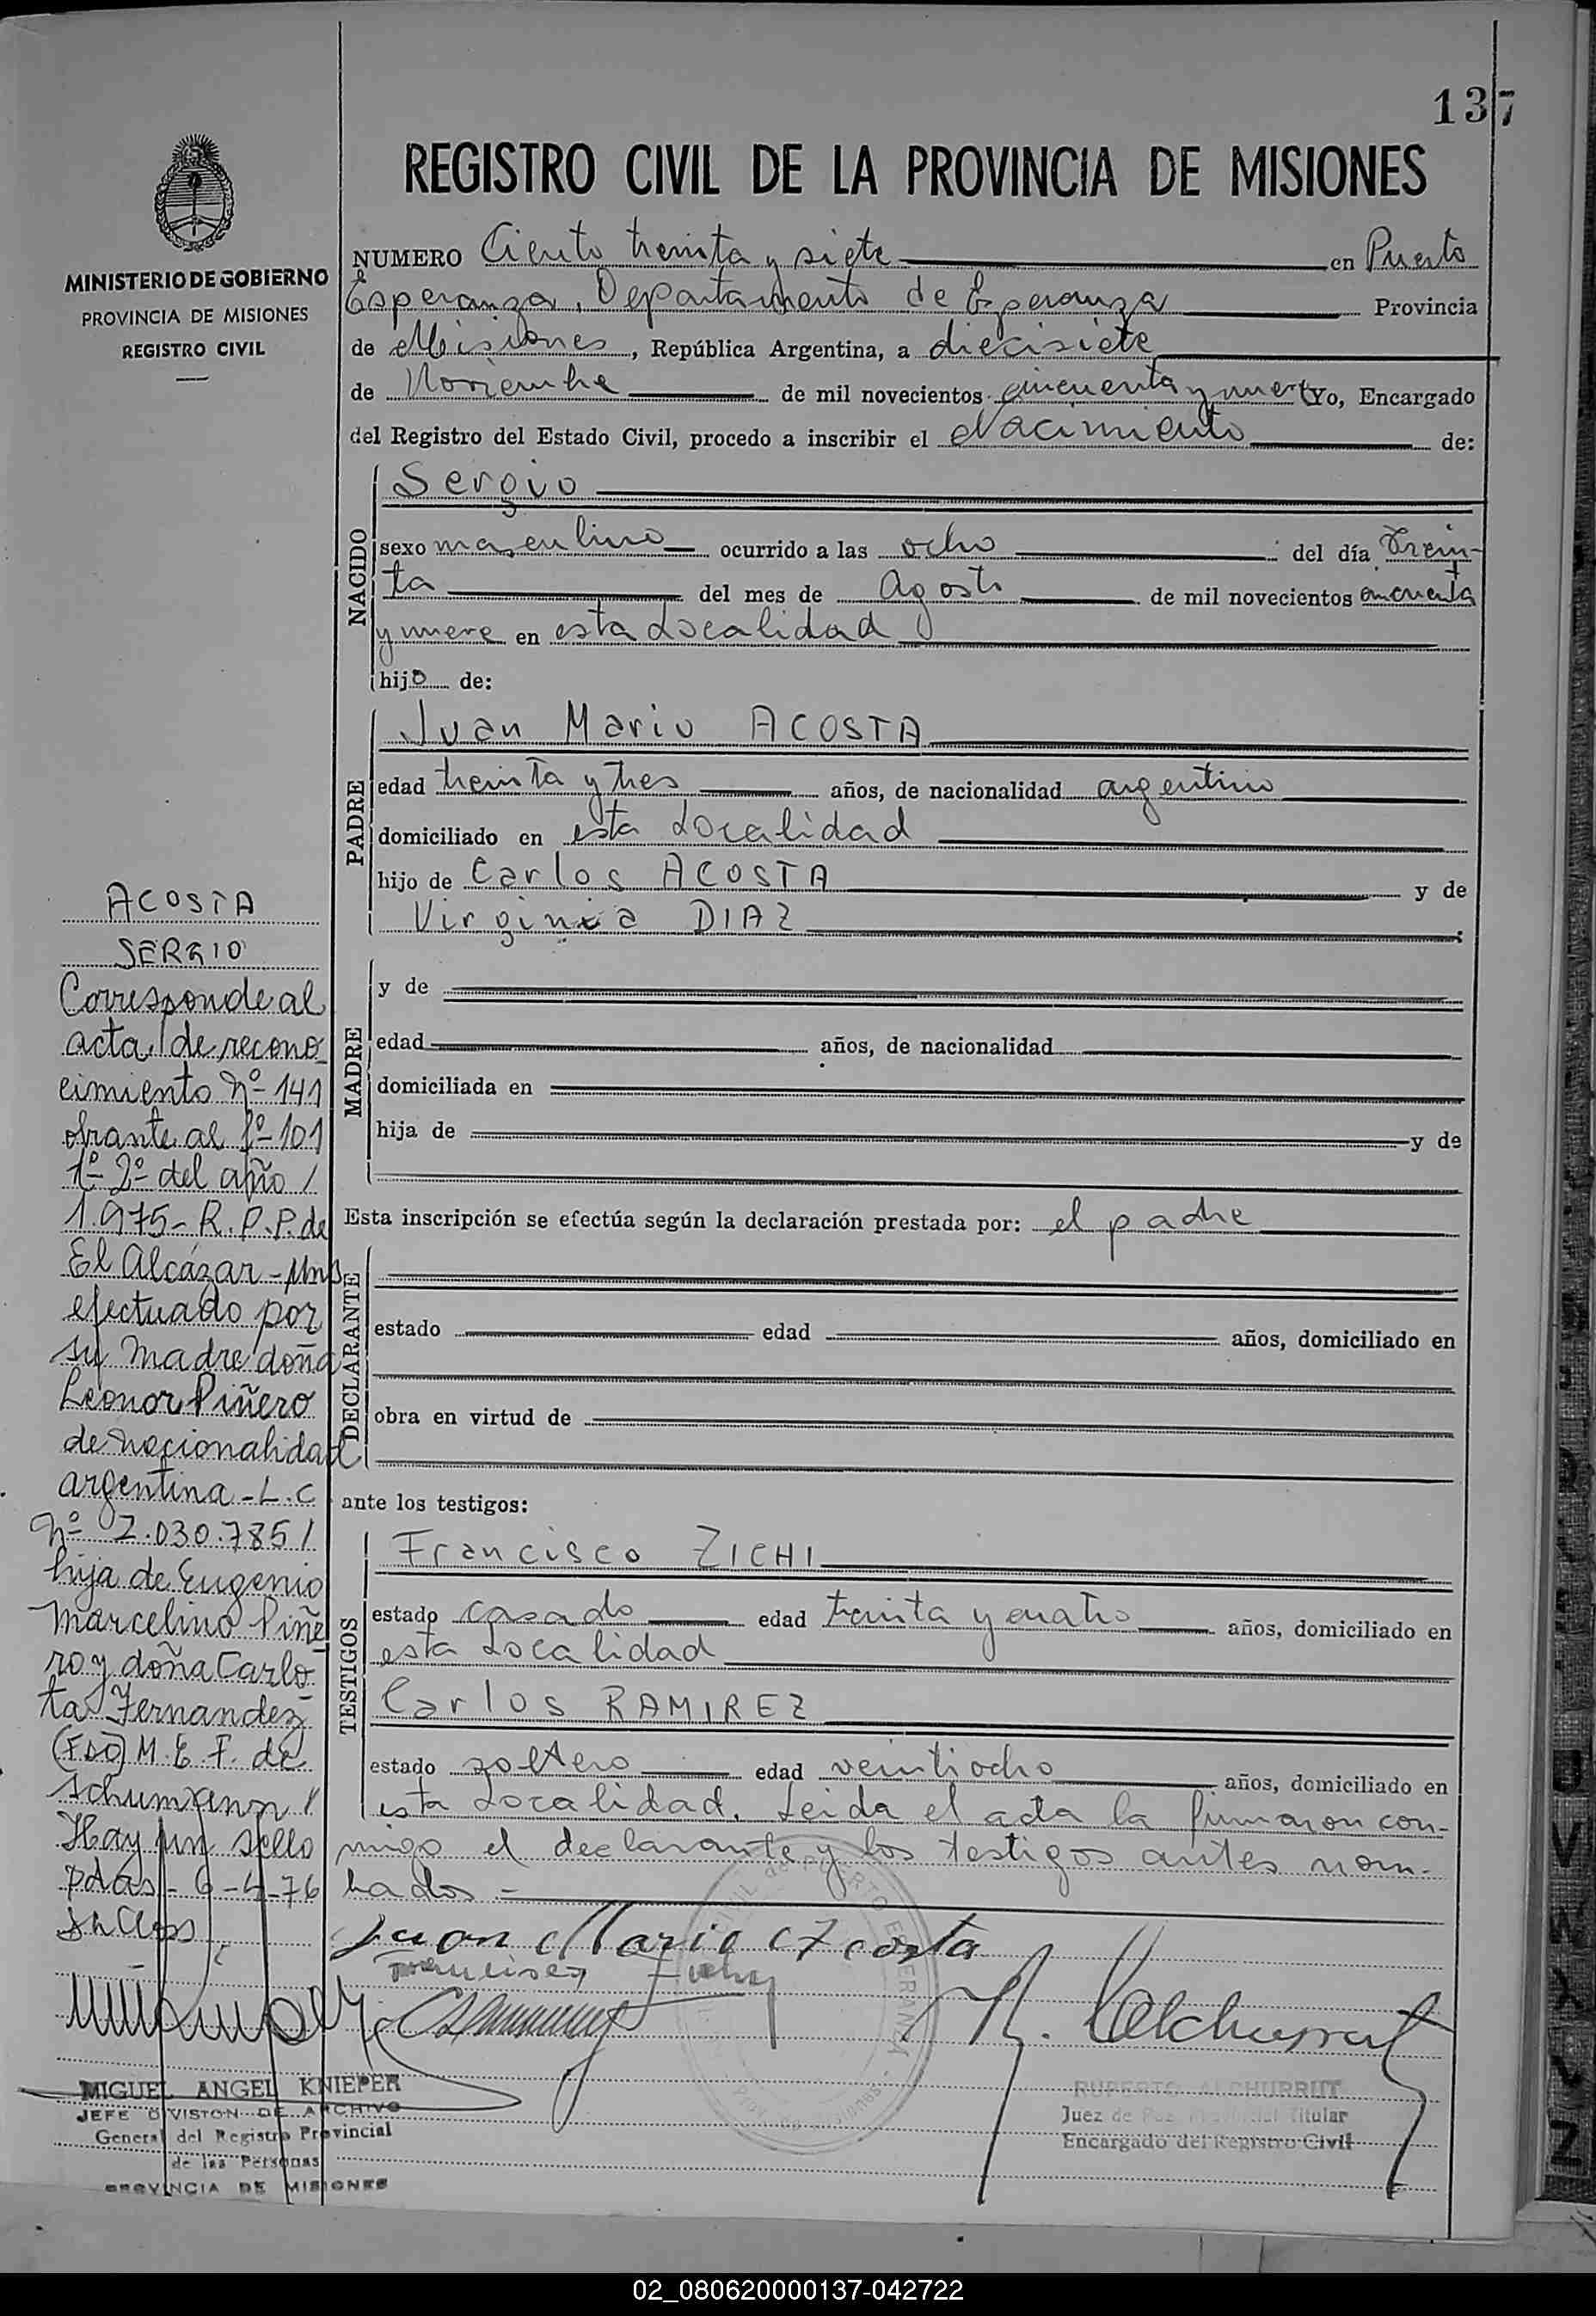 137
REGISTRO CIVIL DE LA PROVINCIA DE MISIONES
MINISTERIO DE GOBIERNO
PROVINCIA DE MISIONES
REGISTRO CIVIL
NUMERO Ciento treinta y siete en Puerto
Esperanza, Departamento de Esperanza Provincia
de Misiones, República Argentina, a diecisiete
de Noviembre de mil novecientos cincuenta y nueve Yo, Encargado
del Registro del Estado Civil, procedo a inscribir el Nacimiento de:
NACIDO
Sergio
sexo masculino ocurrido a las ocho del día Trein-
ta del mes de Agosto de mil novecientos cincuenta
y nueve en esta Localidad
hijo de:
PADRE
Juan Mario ACOSTA
edad treinta y tres años, de nacionalidad argentino
domiciliado en esta Localidad
hijo de Carlos ACOSTA y de
Virginia DIAZ
MADRE
y de
edad años, de nacionalidad
domiciliada en
hija de y de
Esta inscripción se efectúa según la declaración prestada por: el padre
DECLARANTE
estado edad años, domiciliado en
obra en virtud de
ante los testigos:
TESTIGOS
Francisco ZICHI
estado casado edad treinta y cuatro años, domiciliado en
esta Localidad
Carlos RAMIREZ
estado soltero edad veintiocho años, domiciliado en
esta Localidad. Leida el acta la firmaron con-
migo el declarante y los testigos antes nom-
brados -
Juan Mario Acosta
RUPERTO ALCHURRUT
Juez de Paz Provincial Titular
Encargado del Registro Civil
ACOSTA
SERGIO
Corresponde al
acta de recono
cimiento Nº 141
obrante al fº 101
1º 2º del año /
1.975- R.P.P. de
El Alcázar - Mns
efectuado por
su madre doña
Leonor Piñero
de nacionalidad
argentina - L.C
Nº 2.030.785 /
hija de Eugenio
Marcelino Piñe
ro y doña Carlo
ta Fernandez
(FDO) M. E. F. de
Schumann /
Hay un sello
Pdas - 6-4-76
MIGUEL ANGEL KNIEPER
JEFE DIVISION DE ARCHIVO
General del Registro Provincial
de las Personas
PROVINCIA DE MISIONES
02_080620000137-042722